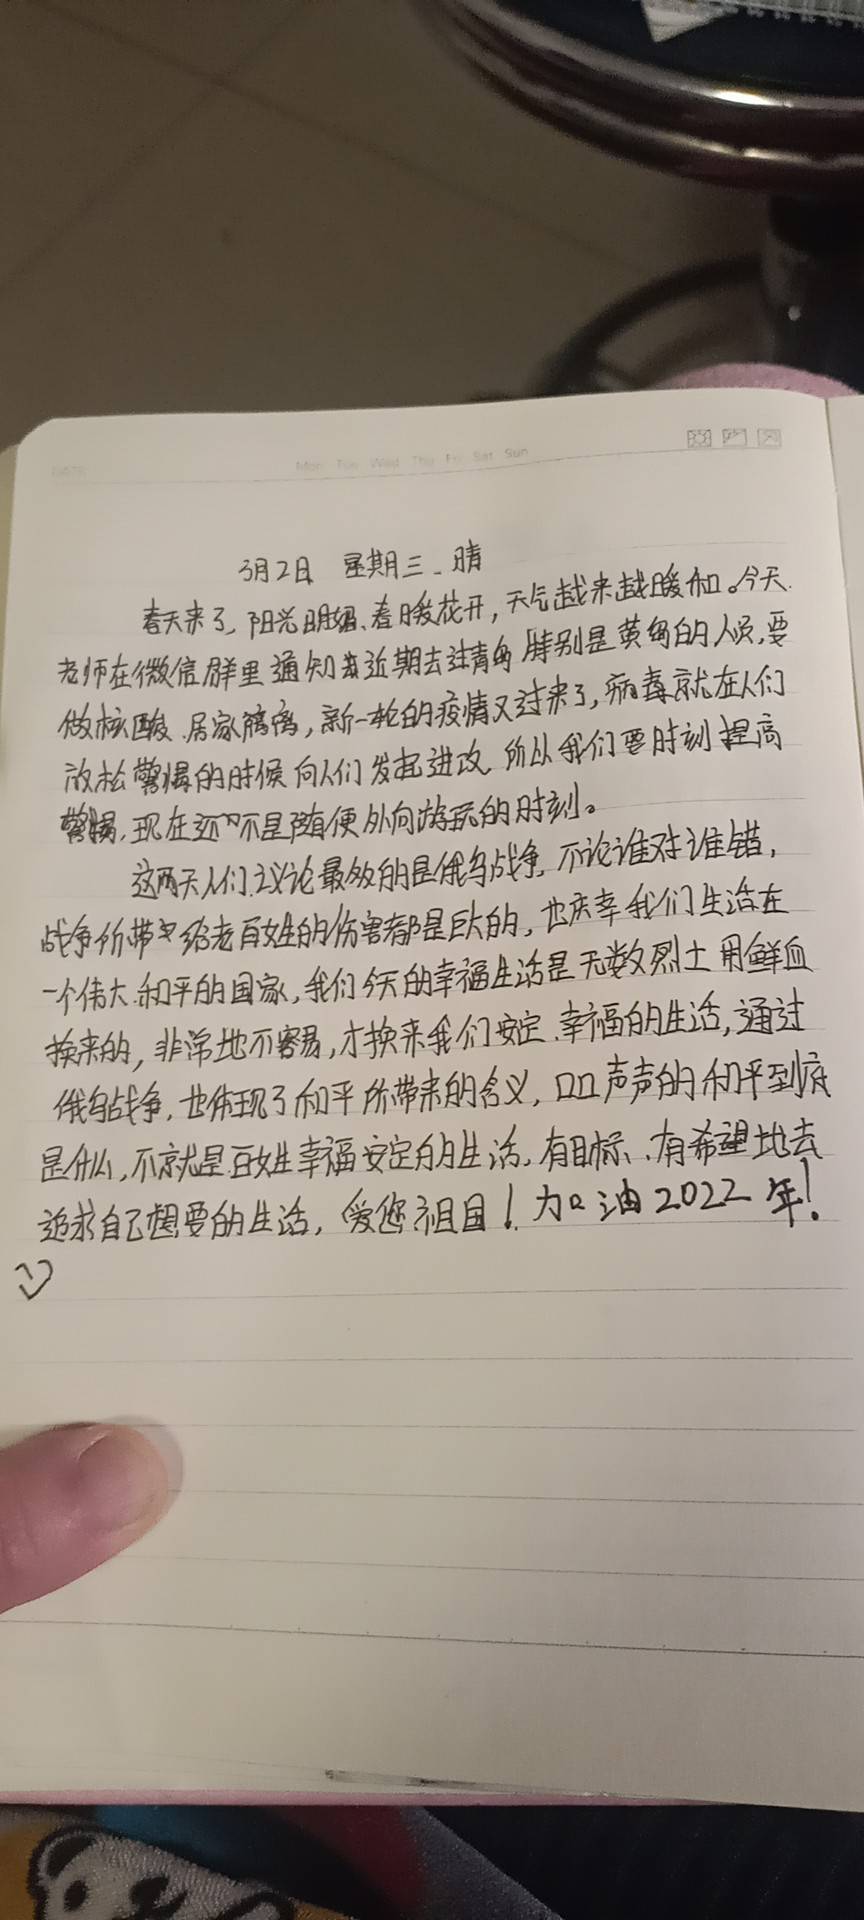 DATE Mon Tue Wed Thu Fri Sat Sun
3月2日 星期三 晴
春天来了、阳光明媚、春暖花开,天气越来越暖和。今天
老师在微信群里通知来近期去过青岛特别是黄岛的人员,要
做核酸、居家隔离,新一轮的疫情又过来了,病毒就在人们
放松警惕的时候向人们发起进攻,所以我们要时刻提高
警惕,现在还不是随便外向游玩的时刻。
这两天人们议论最多的是俄乌战争,不论谁对谁错,
战争所带给老百姓的伤害都是巨大的,也庆幸我们生活在
一个伟大、和平的国家,我们今天的幸福生活是无数烈士用鲜血
换来的,非常地不容易,才换来我们安定、幸福的生活,通过
俄乌战争,也体现了和平所带来的含义,口口声声的和平到底
是什么,不就是百姓幸福安定的生活,有目标、有希望地去
追求自己想要的生活,爱您祖国!加油2022年!